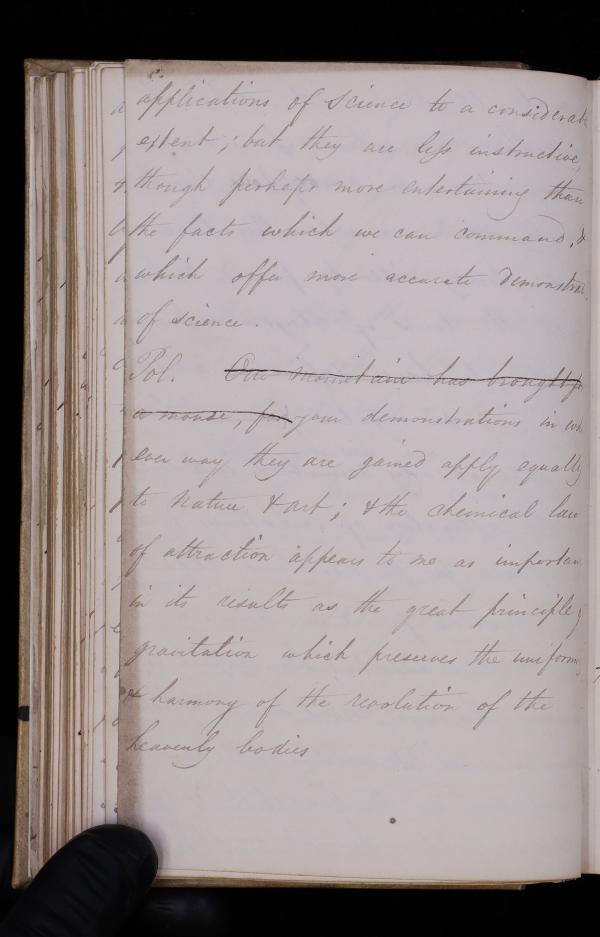 applications of science to a considerab
extent; but they are less instructive,
though perhaps more entertaining than
the facts which we can command, &
which offer more accurate demonstra
of science.
Pol. Our mountain has brought f
a mouse, for your demonstrations in wh
ever way they are gained apply equally
to Nature & art; & the chemical law
of attraction appears to me as importan
in its results as the great principle
gravitation which preserves the uniform
& harmony of the revolution of the
heavenly bodies